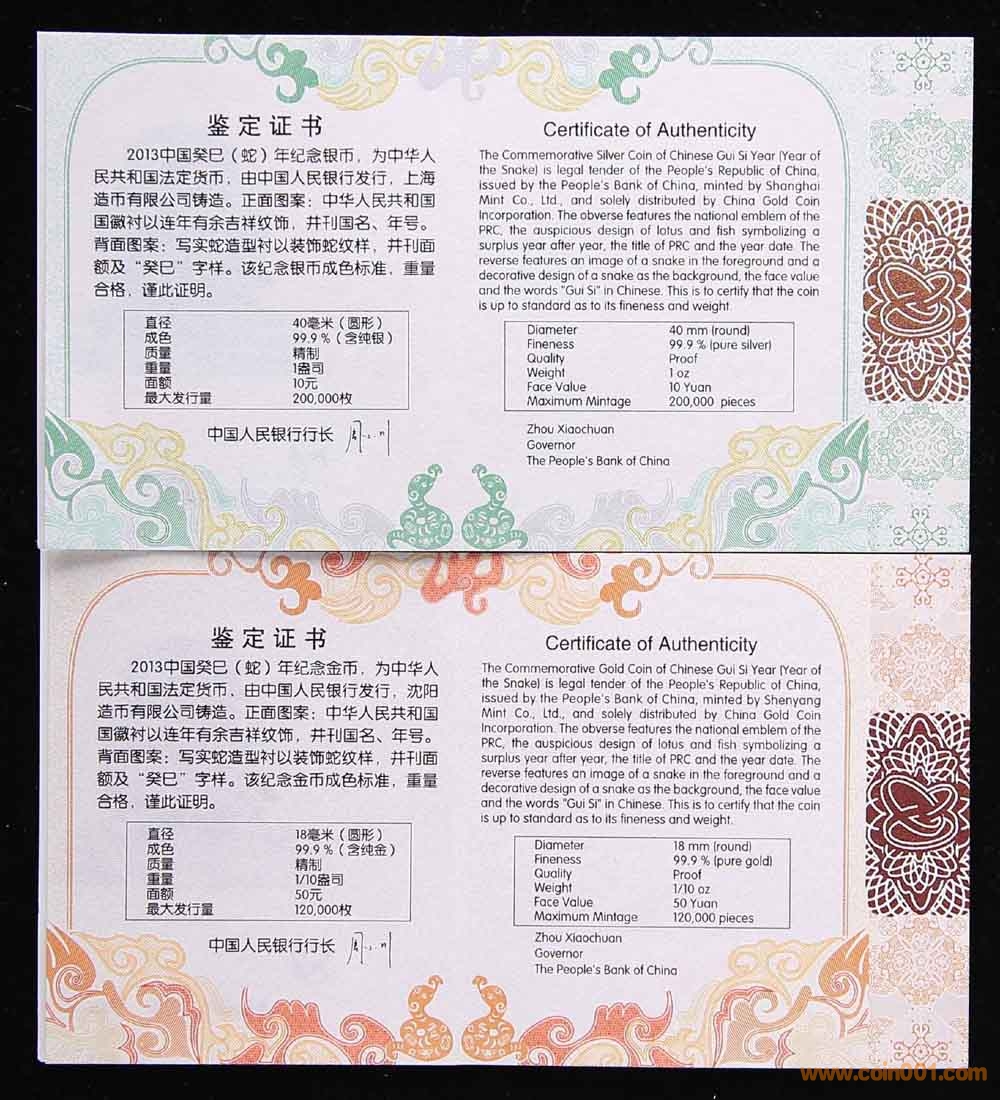 鉴定证书
2013中国癸巳（蛇）年纪念银币，为中华人
民共和国法定货币，由中国人民银行发行，上海
造币有限公司铸造。正面图案：中华人民共和国
国徽衬以连年有余吉祥纹饰，并刊国名、年号。
背面图案：写实蛇造型衬以装饰蛇纹样，并刊面
额及“癸巳”字样。该纪念银币成色标准，重量
合格，谨此证明。
直径 40毫米（圆形）
成色 99.9%（含纯银）
质量 精制
重量 1盎司
面额 10元
最大发行量 200,000枚
中国人民银行行长
Certificate of Authenticity
The Commemorative Silver Coin of Chinese Gui Si Year (Year of
the Snake) is legal tender of the People's Republic of China,
issued by the People's Bank of China, minted by Shanghai
Mint Co., Ltd., and solely distributed by China Gold Coin
Incorporation. The obverse features the national emblem of the
PRC, the auspicious design of lotus and fish symbolizing a
surplus year after year, the title of PRC and the year date. The
reverse features an image of a snake in the foreground and a
decorative design of a snake as the background, the face value
and the words "Gui Si" in Chinese. This is to certify that the coin
is up to standard as to its fineness and weight.
Diameter 40 mm (round)
Fineness 99.9 % (pure silver)
Quality Proof
Weight 1 oz
Face Value 10 Yuan
Maximum Mintage 200,000 pieces
Zhou Xiaochuan
Governor
The People's Bank of China
鉴定证书
2013中国癸巳（蛇）年纪念金币，为中华人
民共和国法定货币，由中国人民银行发行，沈阳
造币有限公司铸造。正面图案：中华人民共和国
国徽衬以连年有余吉祥纹饰，并刊国名、年号。
背面图案：写实蛇造型衬以装饰蛇纹样，并刊面
额及“癸巳”字样。该纪念金币成色标准，重量
合格，谨此证明。
直径 18毫米（圆形）
成色 99.9%（含纯金）
质量 精制
重量 1/10盎司
面额 50元
最大发行量 120,000枚
中国人民银行行长
Certificate of Authenticity
The Commemorative Gold Coin of Chinese Gui Si Year (Year of
the Snake) is legal tender of the People's Republic of China,
issued by the People's Bank of China, minted by Shenyang
Mint Co., Ltd., and solely distributed by China Gold Coin
Incorporation. The obverse features the national emblem of the
PRC, the auspicious design of lotus and fish symbolizing a
surplus year after year, the title of PRC and the year date. The
reverse features an image of a snake in the foreground and a
decorative design of a snake as the background, the face value
and the words "Gui Si" in Chinese. This is to certify that the coin
is up to standard as to its fineness and weight.
Diameter 18 mm (round)
Fineness 99.9 % (pure gold)
Quality Proof
Weight 1/10 oz
Face Value 50 Yuan
Maximum Mintage 120,000 pieces
Zhou Xiaochuan
Governor
The People's Bank of China
www.coin001.com